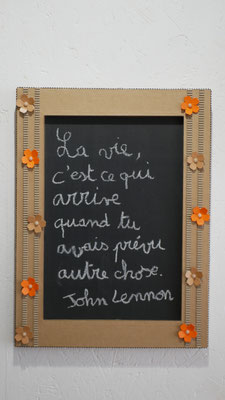 La vie,
c'est ce qui
arrive
quand tu
avais prévu
autre chose.
John Lennon